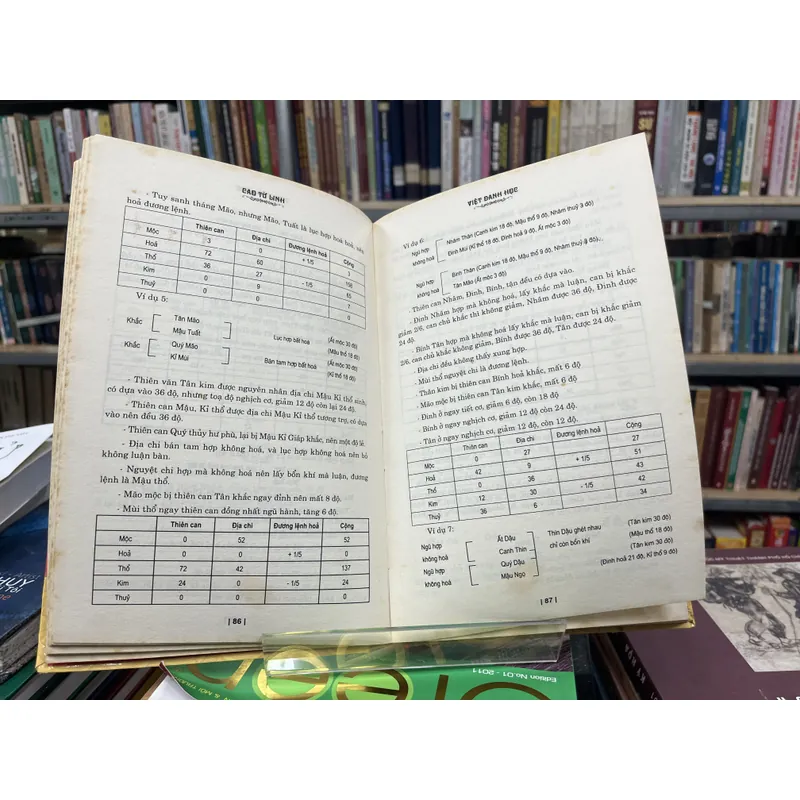 CAO TỪ LINH
- Tuy sanh tháng Mão, nhưng Mão, Tuất là lục hợp hoá hoả, nên
hoả đương lệnh.
Thiên can Địa chi Đương lệnh hoả Cộng
Mộc 3 0 3
Hoả 72 60 + 1/5 158
Thổ 36 27 65
Kim 0 9 - 1/5 7
Thuỷ 0 0 0
Ví dụ 5:
Khắc Tân Mão Lục hợp bất hoá (Ất mộc 30 độ)
Mậu Tuất (Mậu thổ 18 độ)
Khắc Quý Mão Bán tam hợp bất hoá (Ất mộc 30 độ)
Kỉ Mùi (Kỉ thổ 18 độ)
- Thiên văn Tân kim được nguyên nhân địa chi Mậu Kỉ thổ sinh,
có dựa vào 36 độ, nhưng toạ độ nghịch cơ, giảm 12 độ còn lại 24 độ.
- Thiên can Mậu, Kỉ thổ được địa chi Mậu Kỉ thổ tương trợ, có dựa
vào nên đều 36 độ.
- Thiên can Quý thủy hư phù, lại bị Mậu Kỉ Giáp khắc, nên một độ lẻ.
- Địa chi bán tam hợp không hoá, và lục hợp không hoá nên bỏ
không luận bàn.
- Nguyệt chi hợp mà không hoá nên lấy bổn khí mà luận, đương
lệnh là Mậu thổ.
- Mão mộc bị thiên can Tân khắc ngay đỉnh nên mất 8 độ.
- Mùi thổ ngay thiên can đồng nhất ngũ hành, tăng 6 độ.
Thiên can Địa chi Đương lệnh hoả Cộng
Mộc 0 52 52
Hoả 0 0 + 1/5 0
Thổ 72 42 137
Kim 24 0 - 1/5 24
Thuỷ 0 0 0
| 86 |
VIỆT DANH HỌC
Ví dụ 6:
Ngũ hợp không hoá Nhâm Thân (Canh kim 18 độ, Mậu thổ 9 độ, Nhâm thuỷ 9 độ)
Đinh Mùi (Kỉ thổ 18 độ, Đinh hoả 9 độ, Ất mộc 3 độ)
Ngũ hợp không hoá Bính Thân (Canh kim 18 độ, Mậu thổ 9 độ, Nhâm thuỷ 9 độ)
Tân Mão (Ất mộc 3 độ)
- Thiên can Nhâm, Đinh, Bính, Tân đều có dựa vào.
- Đinh Nhâm hợp mà không hoá, lấy khắc mà luận, can bị khắc
giảm 2/6, can chủ khắc thì không giảm, Nhâm được 36 độ, Đinh được
24 độ.
- Bính Tân hợp mà không hoá lấy khắc mà luận, can bị khắc giảm
2/6, can chủ khắc không giảm, Bính được 36 độ, Tân được 24 độ.
- Địa chi đều không thấy xung hợp.
- Mùi thổ nguyệt chi là đương lệnh.
- Thân kim bị thiên can Bính hoả khắc, mất 6 độ
- Mão mộc bị thiên can Tân kim khắc, mất 6 độ
- Đinh ở ngay tiết cơ, giảm 6 độ, còn 18 độ
- Bính ở ngay nghịch cơ, giảm 12 độ còn 24 độ.
- Tân ở ngay nghịch cơ, giảm 12 độ, còn 12 độ.
Thiên can Địa chi Đương lệnh hoả Cộng
Mộc 0 27 27
Hoả 42 9 + 1/5 51
Thổ 0 36 43
Kim 12 30 - 1/5 42
Thuỷ 36 6 34
Ví dụ 7:
Ngũ hợp không hoá Ất Dậu Thìn Dậu ghét nhau (Tân kim 30 độ)
Canh Thìn chỉ còn bổn khí (Mậu thổ 18 độ)
Ngũ hợp không hoá Quý Dậu (Tân kim 30 độ)
Mậu Ngọ (Đinh hoả 21 độ, Kỉ thổ 9 độ)
| 87 |
Edition No.01 - 2011